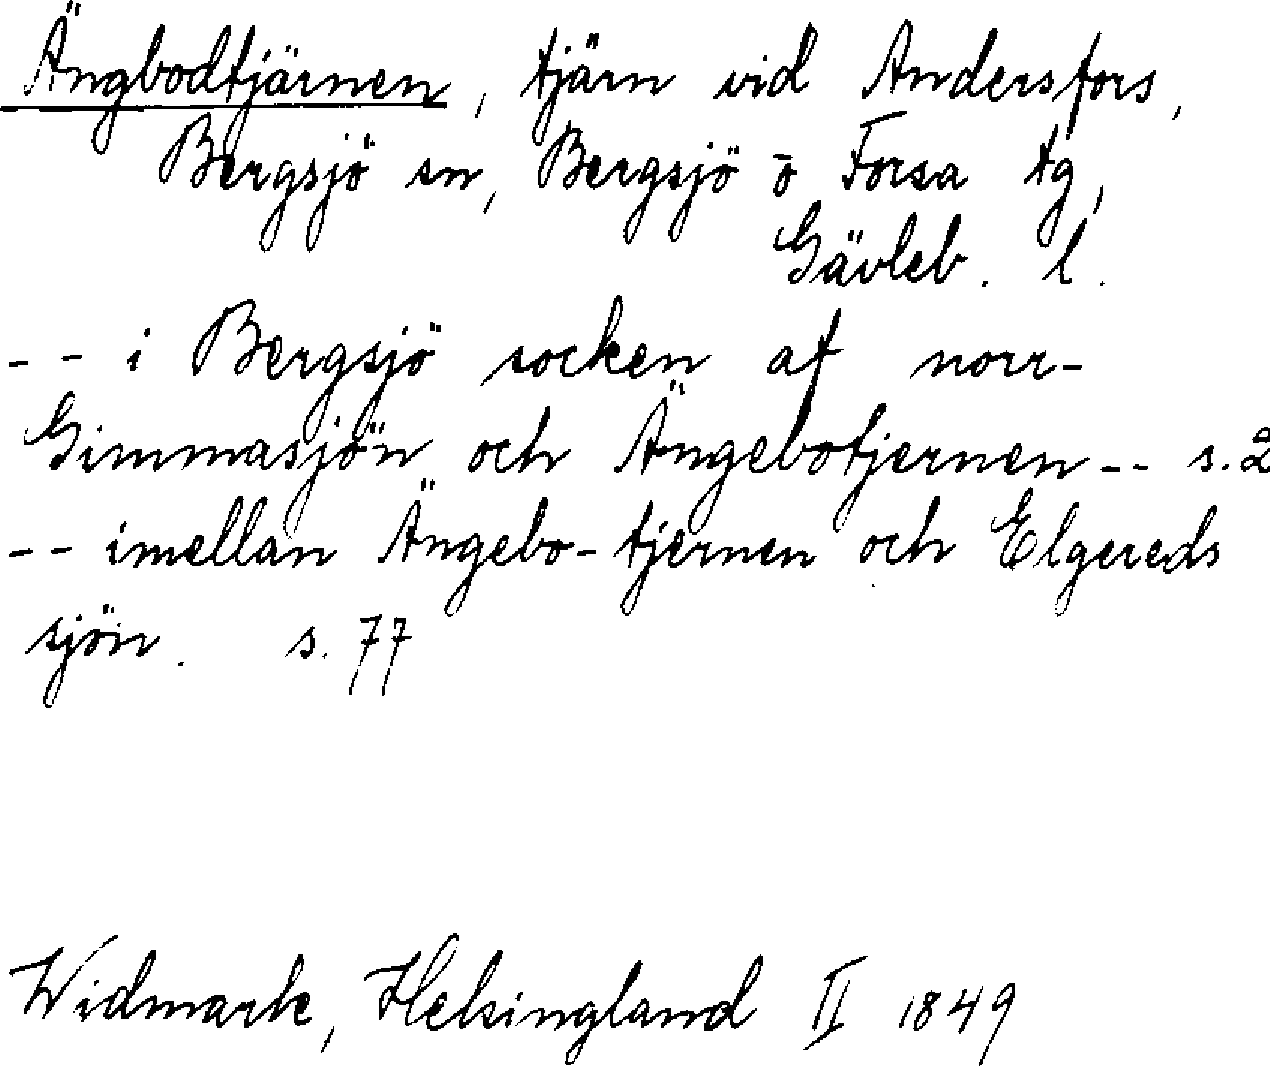 Ängbodtjärnen, tjärn vid Andersfors,
Bergsjö sn, Bergsjö o Forsa tg,
Gävleb. l.
-- i Bergsjö socken af norr-
Gimmasjön och Ängebotjernen -- s. 2
-- imellan Ängebo-tjernen och Elgereds
sjön. s. 77
Widmark, Helsingland II 1849